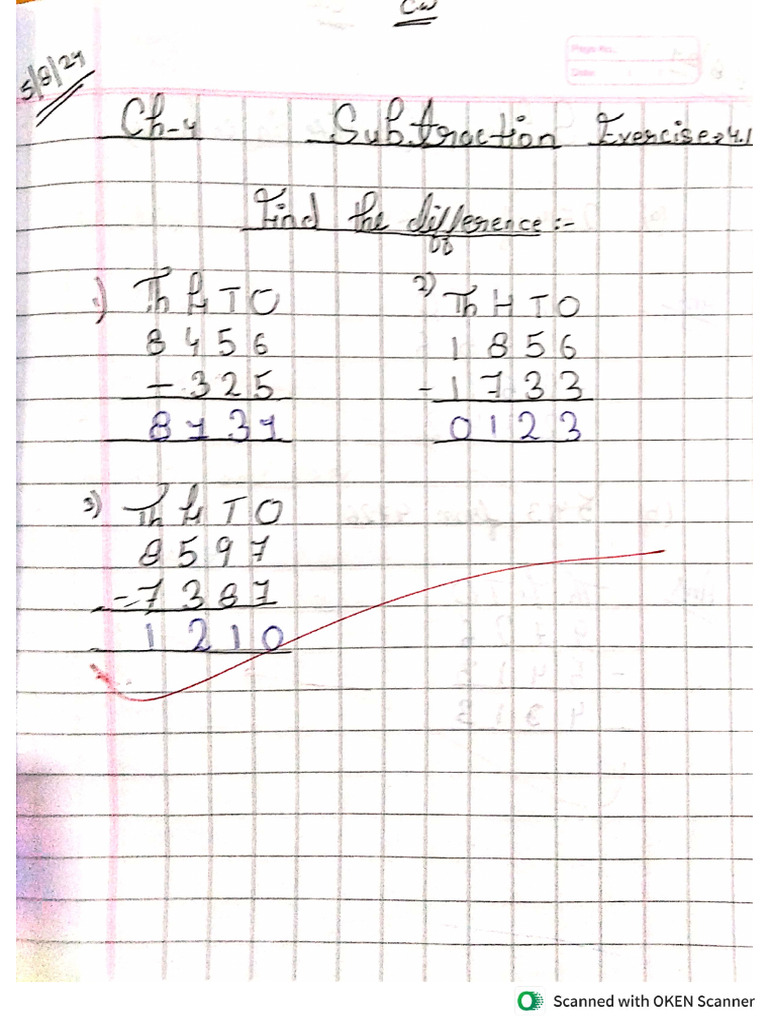 Cw
5/8/24
Page No.
Date
Ch-4 Subtraction Exercise 4.1
Find the difference :-
1) Th H T O
8 4 5 6
- 3 2 5
8 1 3 1
2) Th H T O
1 8 5 6
- 1 7 3 3
0 1 2 3
3) Th H T O
8 5 9 7
- 7 3 8 7
1 2 1 0
Scanned with OKEN Scanner